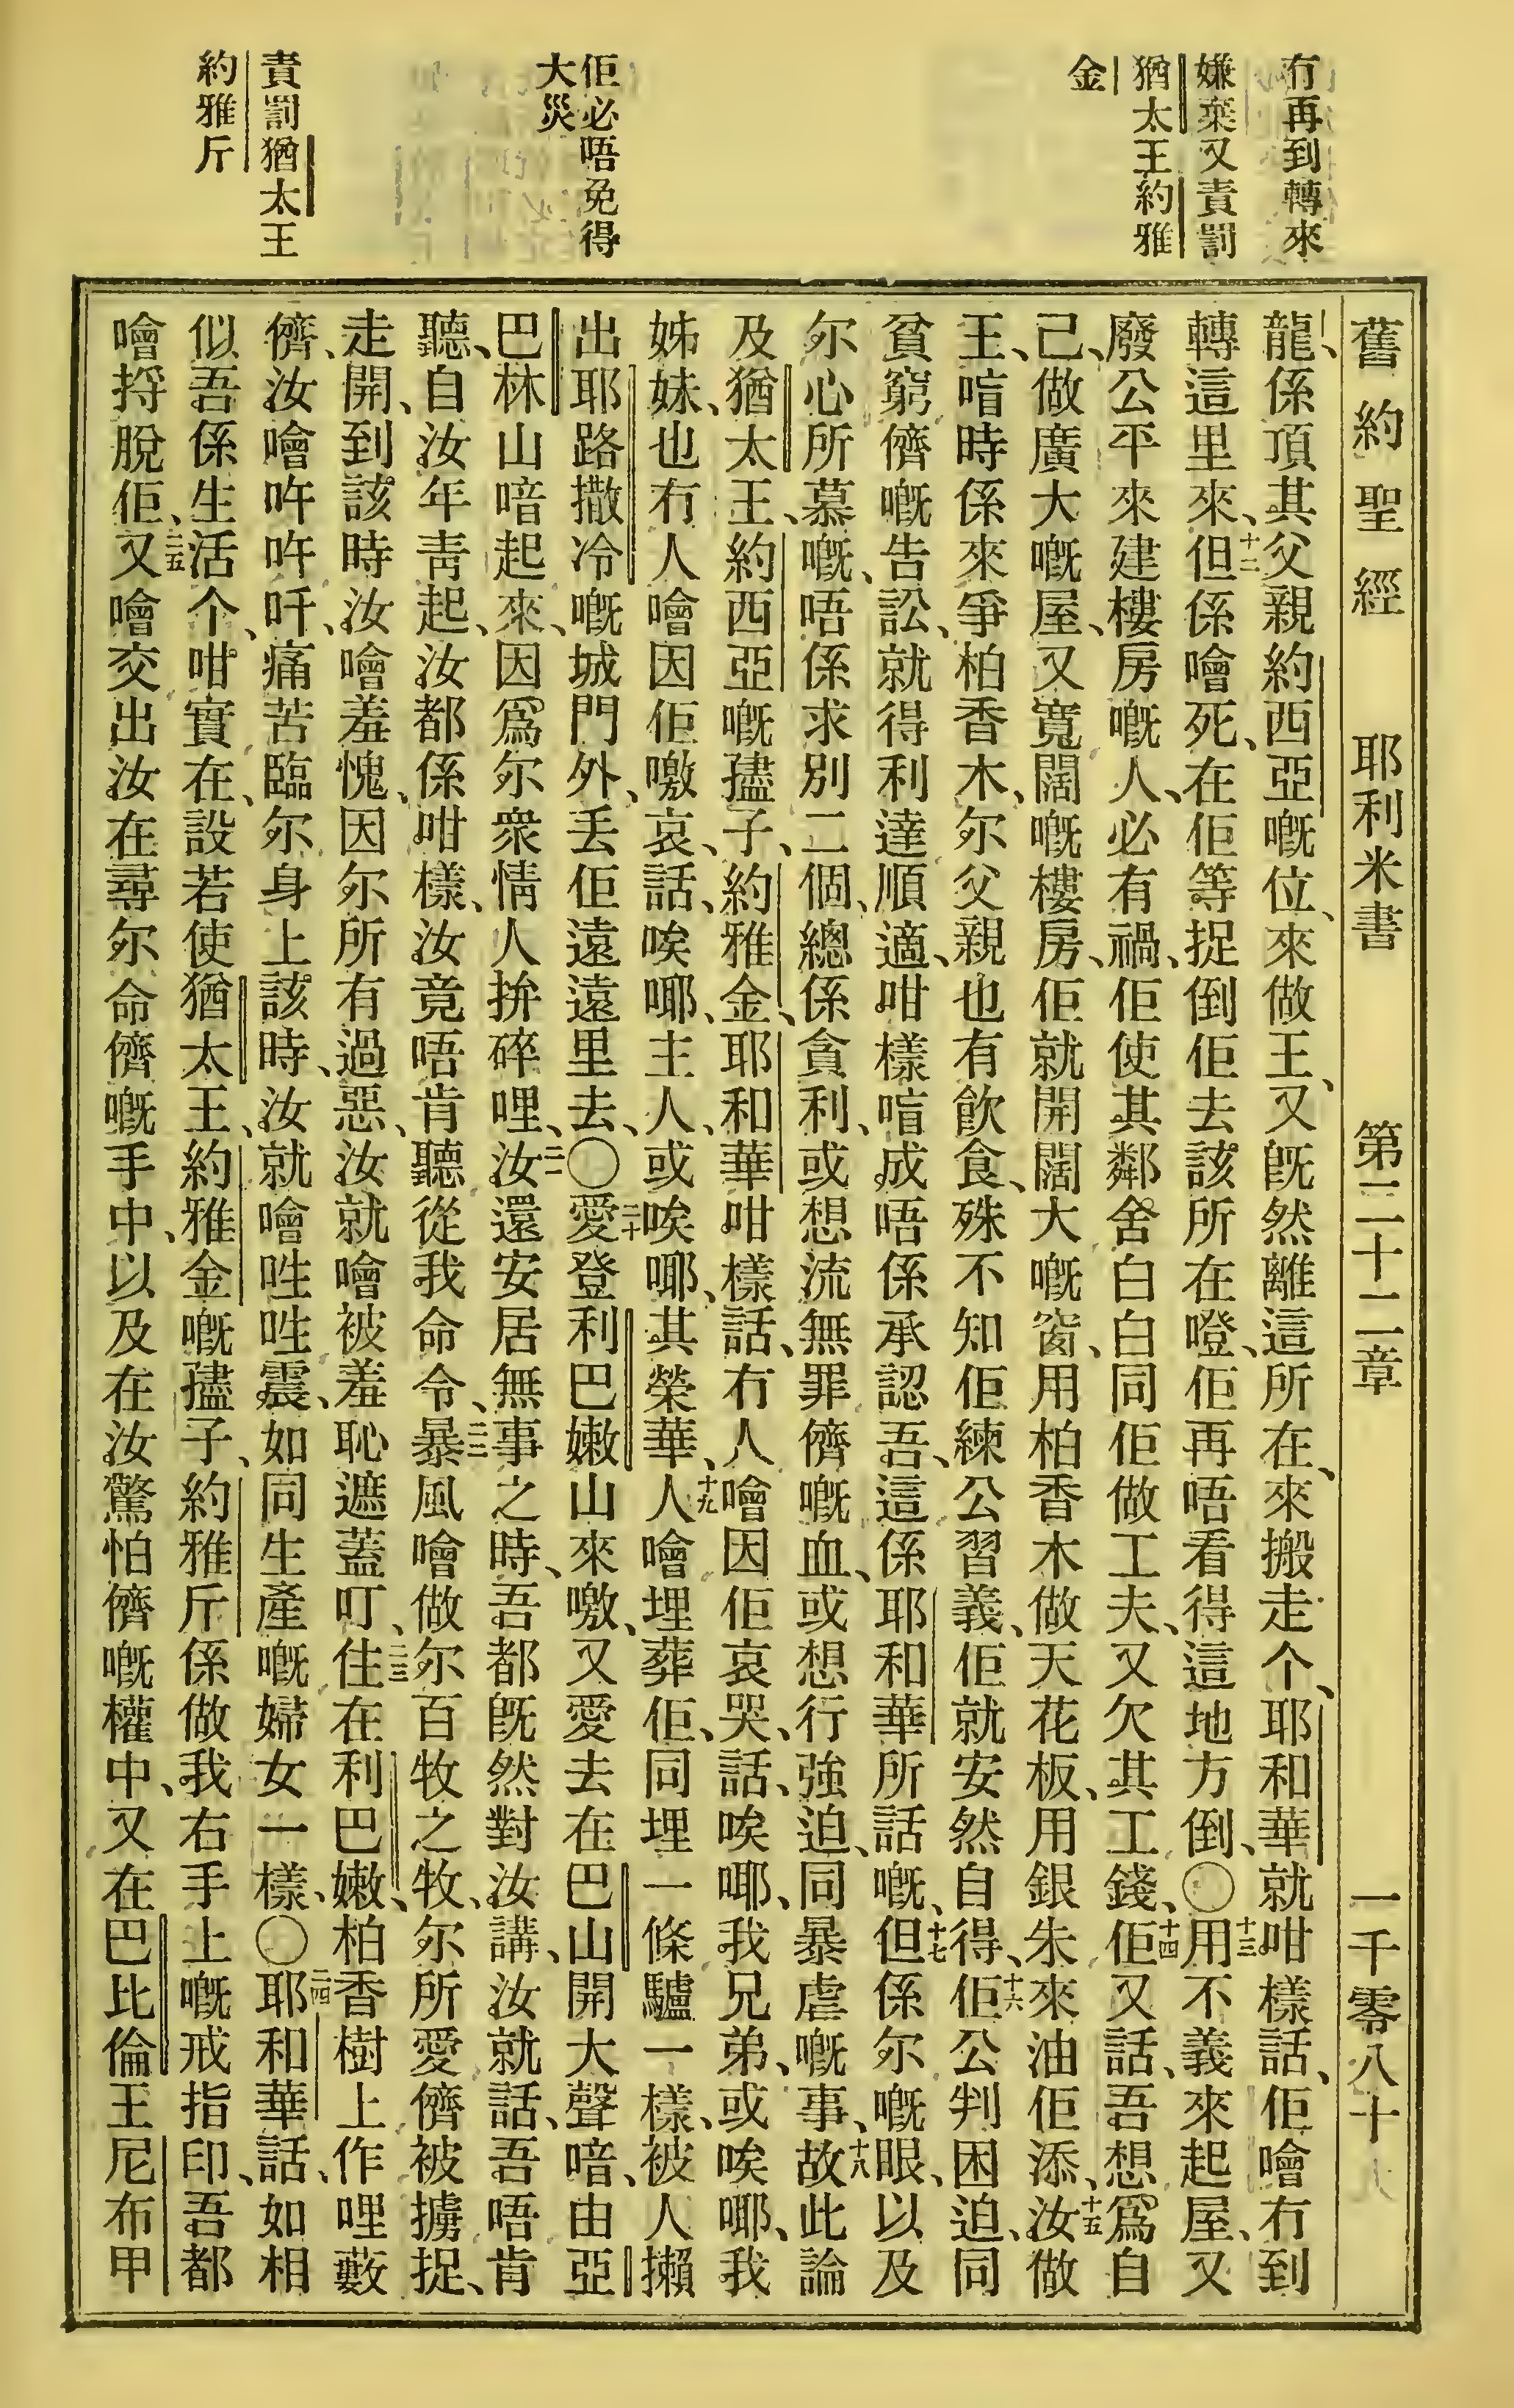 冇再到轉來
嫌棄又責罰
猶太王約雅
金
佢必唔免得
大災
責罰猶太王
約雅斤
舊約聖經 耶利米書 第二十二章 一千零八十九
龍、係頂其父親約西亞嘅位、來做王、又旣然離這所在、來搬走个、耶和華就咁樣話、佢噲冇到
轉這里來、十二但係噲死、在佢等捉倒佢去該所在嘡、佢再唔看得這地方倒、〇十三用不義來起屋、又
廢公平來建樓房嘅人、必有禍、佢使其鄰舍白白同佢做工夫、又欠其工錢、十四佢又話、吾想爲自
己、做廣大嘅屋、又寬闊嘅樓房、佢就開闊大嘅窗、用柏香木做天花板、用銀朱來油佢添、十五汝做
王、喑時係來爭柏香木、尔父親也有飮食、殊不知佢練公習義、佢就安然自得、十六佢公判困迫、同
貧窮儕嘅告訟、就得利達順適、咁樣喑成唔係承認吾、這係耶和華所話嘅、十七但係尔嘅眼、以及
尔心所慕嘅、唔係求別二個、總係貪利、或想流無罪儕嘅血、或想行強迫、同暴虐嘅事、十八故此論
及猶太王、約西亞嘅𡥧子、約雅金、耶和華咁樣話、冇人噲因佢哀哭、話、唉㖿、我兄弟、或唉㖿、我
姊妹、也冇人噲因佢噭哀、話、唉㖿、主人、或唉㖿、其榮華、十九人噲埋葬佢、同埋一條驢一樣、被人攋
出耶路撒冷嘅城門外、丢佢遠遠里去、〇二十愛登利巴嫩山來噭、又愛去在巴山開大聲喑、由亞
巴林山喑起來、因爲尔衆情人拚碎哩、二一汝還安居無事之時、吾都旣然對汝講、汝就話、吾唔肯
聽、自汝年靑起、汝都係咁樣、汝竟唔肯聽從我命令、二二暴風噲做尔百牧之牧、尔所愛儕被擄捉、
走開、到該時汝噲羞愧、因尔所有過惡、汝就噲被羞恥遮蓋叮、二三住在利巴嫩、柏香樹上作哩藪
儕、汝噲吘吘吀、痛苦臨尔身上該時、汝就噲呫呫震、如同生產嘅婦女一樣、〇二四耶和華話、如相
似吾係生活个、咁實在、設若使猶太王、約雅金嘅𡥧子、約雅斤係做我右手上嘅戒指印、吾都
噲捋脫佢、二五又噲交出汝在尋尔命儕嘅手中、以及在汝驚怕儕嘅權中、又在巴比倫王尼布甲